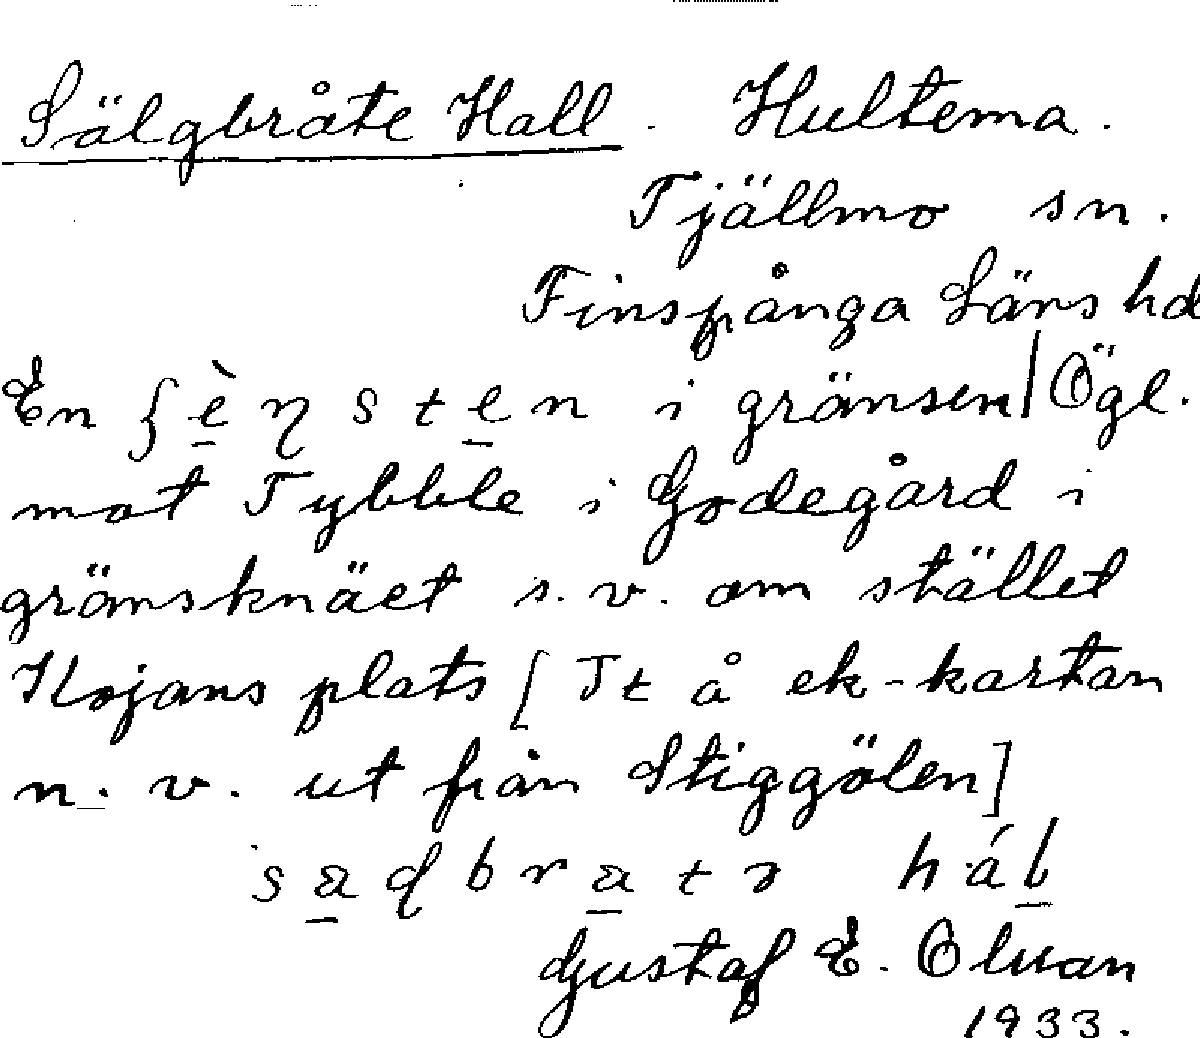 Sälgbråte Hall. Hultema.
Tjällmo sn.
Finspånga Läns hd
En ʃè̠ŋste̠n i gränsen / Ögl.
mot Tybble i Godegård i
gränsknäet s.v. om stället
Kojans plats [It å ek-kartan
n.v. ut från Stiggölen]
hál̠
Gustaf E.
1933.